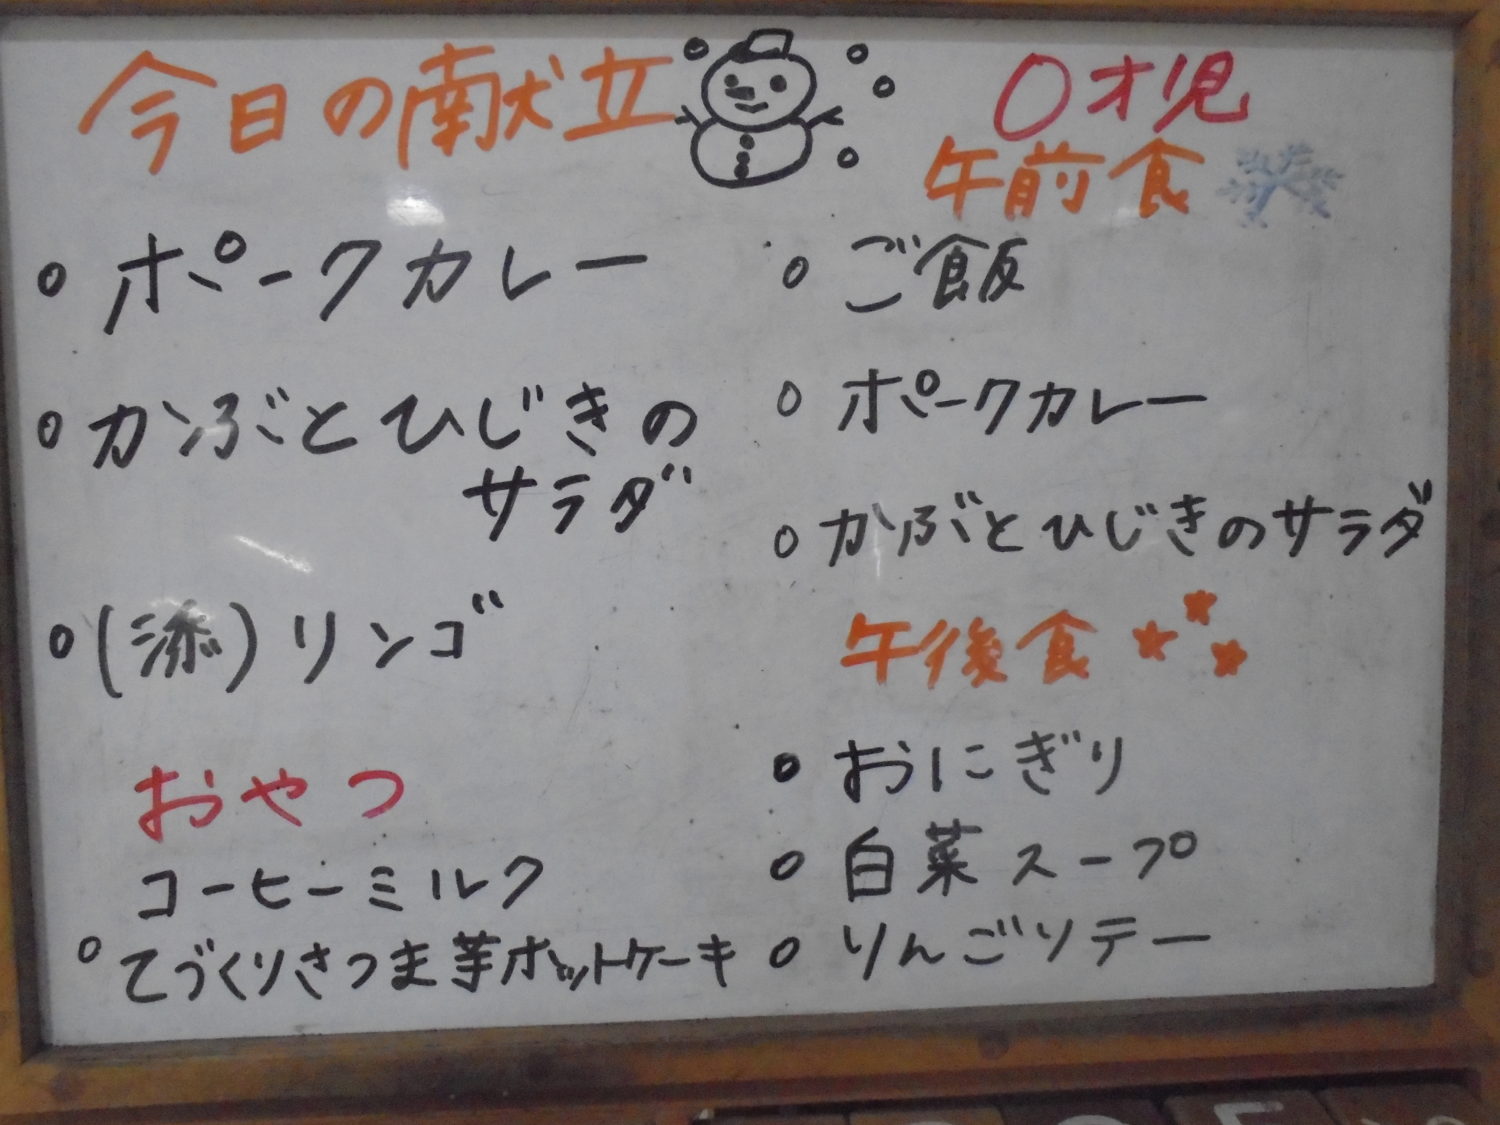 今日の献立
○ ポークカレー
○ かぶとひじきの
サラダ
○ (添) リンゴ
おやつ
コーヒーミルク
○ てづくりさつま芋ホットケーキ
0才児
午前食
○ ご飯
○ ポークカレー
○ かぶとひじきのサラダ
午後食
○ おにぎり
○ 白菜スープ
○ りんごソテー